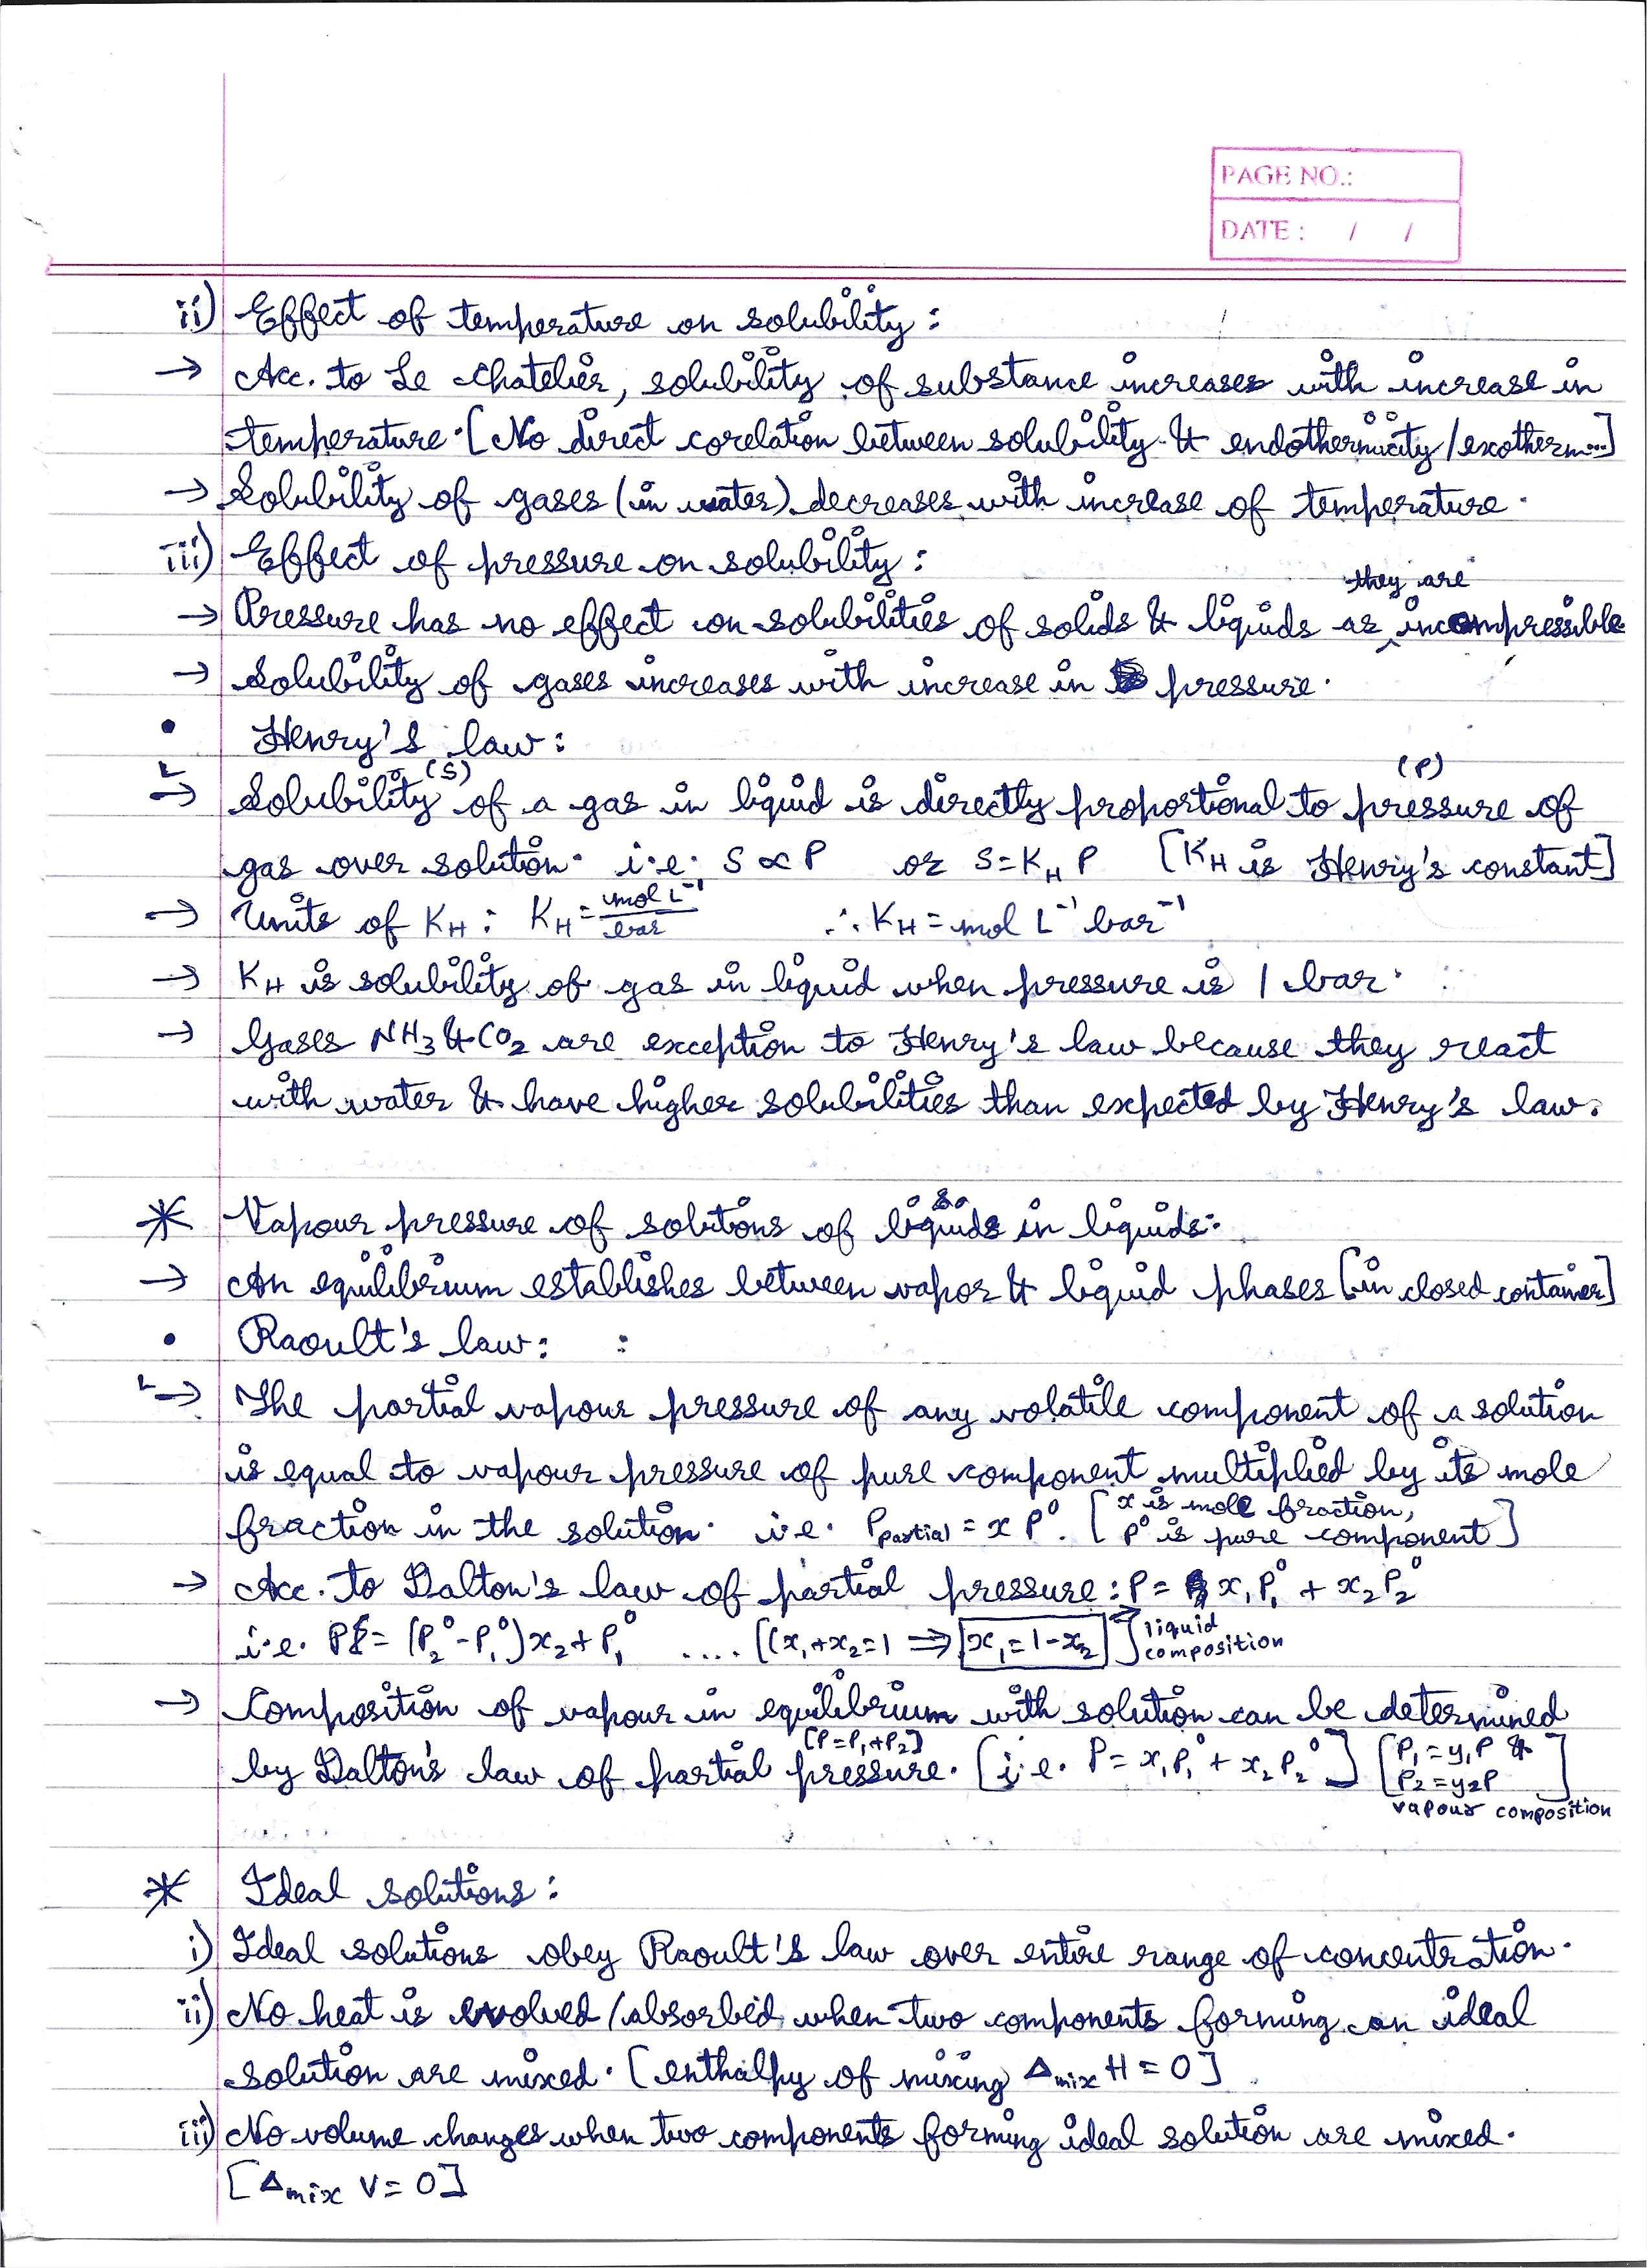 PAGE NO.:
DATE : / /
ii) Effect of temperature on solubility :
→ Acc. to Le Chatelier, solubility of substance increases with increase in
temperature. [No direct corelation between solubility & endothermicity/exotherm...]
→ Solubility of gases (in water) decreases with increase of temperature.
iii) Effect of pressure on solubility :
they are
→ Pressure has no effect on solubilities of solids & liquids as ^ incompressible
→ Solubility of gases increases with increase in pressure.
• Henry's law :
→ Solubility (S) of a gas in liquid is directly proportional to pressure (P) of
gas over solution. i.e. S ∝ P or S = K_H P [K_H is Henry's constant]
→ Units of K_H : K_H = mol L⁻¹/bar ∴ K_H = mol L⁻¹ bar⁻¹
→ K_H is solubility of gas in liquid when pressure is 1 bar.
→ Gases NH₃ & CO₂ are exception to Henry's law because they react
with water & have higher solubilities than expected by Henry's law.
* Vapour pressure of solutions of liquids in liquids:
→ An equilibrium establishes between vapor & liquid phases [in closed container]
• Raoult's law : :
→ The partial vapour pressure of any volatile component of a solution
is equal to vapour pressure of pure component multiplied by its mole
fraction in the solution. i.e. P_partial = x P⁰. [x is mole fraction, P⁰ is pure component]
→ Acc. to Dalton's law of partial pressure : P = x₁P₁⁰ + x₂P₂⁰
i.e. P = (P₂⁰ - P₁⁰)x₂ + P₁⁰ .... [(x₁+x₂=1 ⇒ x₁=1-x₂] → liquid composition
→ Composition of vapour in equilibrium with solution can be determined
[P=P₁+P₂]
by Dalton's law of partial pressure. [i.e. P = x₁P₁⁰ + x₂P₂⁰] [P₁=y₁P & P₂=y₂P]
vapour composition
* Ideal solutions :
i) Ideal solutions obey Raoult's law over entire range of concentration.
ii) No heat is evolved/absorbed when two components forming an ideal
solution are mixed. [enthalpy of mixing Δmix H = 0]
iii) No volume changes when two components forming ideal solution are mixed.
[Δmix V = 0]